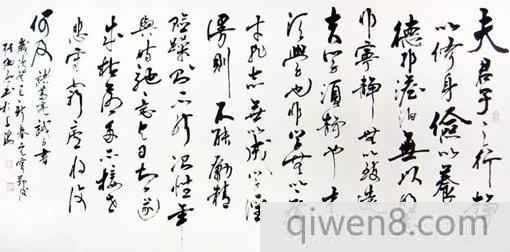 夫君子之行静
以修身儉以養
德非澹泊無以明
非寧静無以致遠
夫學須静也才
須學也非學無以廣
才非志無以成學淫
漫則不能勵精
險躁則不能治性年
與時馳意與日去遂
成枯落多不接世
悲守窮廬将復
何及 諸葛亮誡子書
qiwen8.com